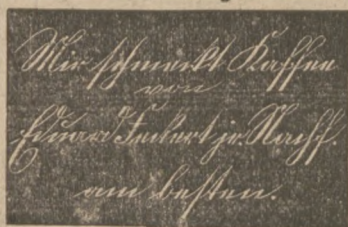 Mir schmeckt Kaffee
von
Eduard Teckert jr. Nachf.
am besten.